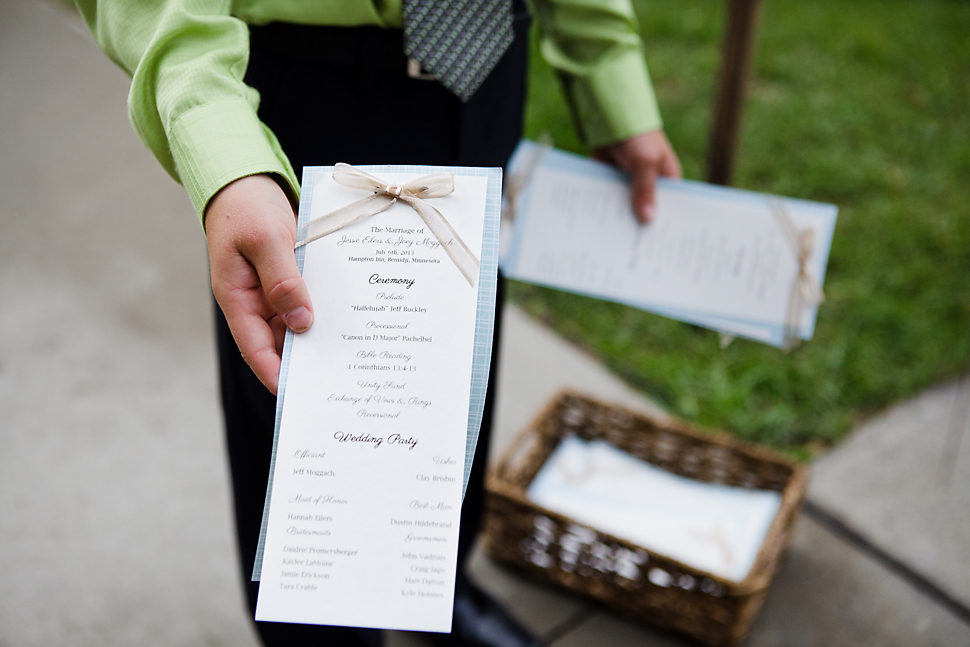 The Marriage of
Jessie Eilers & Joey Moggach
July 6th, 2013
Hampton Inn, Bemidji, Minnesota
Ceremony
Prelude
"Hallelujah" Jeff Buckley
Processional
"Canon in D Major" Pachelbel
Bible Reading
1 Corinthians 13:4-13
Unity Sand
Exchange of Vows & Rings
Recessional
Wedding Party
Officiant
Jeff Moggach
Maid of Honor
Hannah Eilers
Bridesmaids
Kaylee LaMonte
Jamie Erickson
Tara Crable
Usher
Clay Brisbin
Best Man
Dustin Hildebrand
Groomsmen
John Vadnais
Craig
Matt Dalton
Kyle Holmes